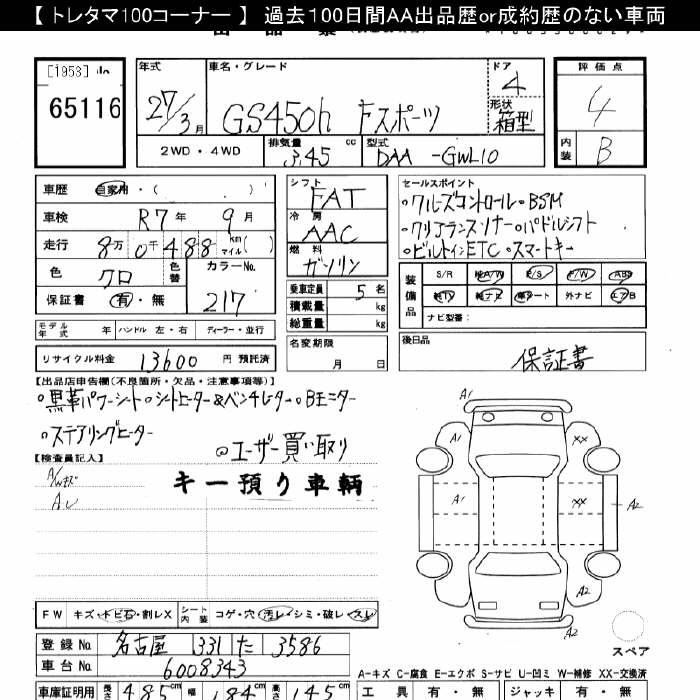 【 トレタマ100コーナー 】 過去100日間AA出品歴or成約歴のない車両
[1953]
65116
年式
27/3月
車名・グレード
GS450h Fスポーツ
ドア
4
形状
箱型
評価点
4
内装
B
2WD ・ 4WD
排気量
345 cc
型式
DAA -GWL10
車歴 自家用・( )
車検 R7年 9月
走行 8万 0千 488 km マイル ( )
色 クロ
色替
カラーNo.
217
保証書 有・無
シフト
FAT
冷房
AAC
燃料
ガソリン
乗車定員 5名
積載量 kg
総重量 kg
セールスポイント
・クルーズコントロール・BSM
・クリアランスソナー・パドルシフト
・ビルトインETC・スマートキー
装備品
S/R 純A/W P/S P/W ABS
純TV 純ナビ 革シート 外ナビ エアB
ナビ型番:
モデル年式 年
ハンドル 左・右
ディーラー・並行
リサイクル料金 13600 円 預託済
名変期限
月 日
後日品
保証書
【出品店申告欄(不良箇所・欠品・注意事項等)】
・黒革パワーシート・シートヒーター&ベンチレーター・Bモニター
・ステアリングヒーター
◎ユーザー買い取り
【検査員記入】
A/Wキズ
キー預り車輌
A1
A1
XX
A1
XX
A2
A2
A2
スペア
FW キズ・トビ石・割レX
シート内装
コゲ・穴・汚レ・シミ・破レ・スレ
登録No. 名古屋 331 た 3586
車台No. 6008343
A-キズ C-腐食 E-エクボ S-サビ U-凹ミ W-補修 XX-交換済
車庫証明用 長さ 485cm 幅 184cm 高さ 145cm
工具 有・無 ジャッキ 有・無